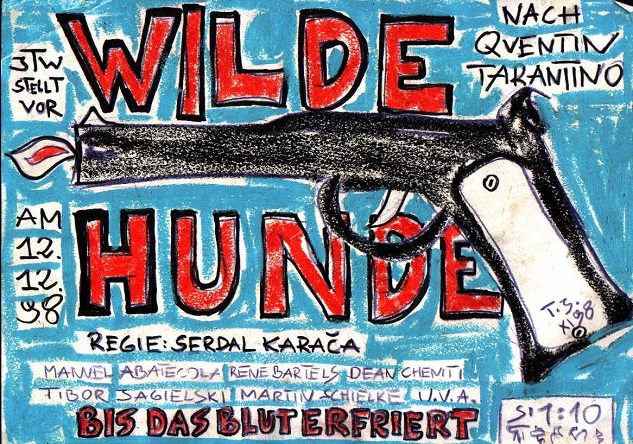 JTW
STELLT
VOR
WILDE
NACH
QUENTIN
TARANTINO
AM
12.
12.
98
HUNDE
REGIE: SERDAL KARAČA
MANUEL ABATECOLA RENE BARTELS DEAN CHEMTI
TIBOR JAGIELSKI MARTIN SCHIELKE U.V.A.
BIS DAS BLUT ERFRIERT
1:10